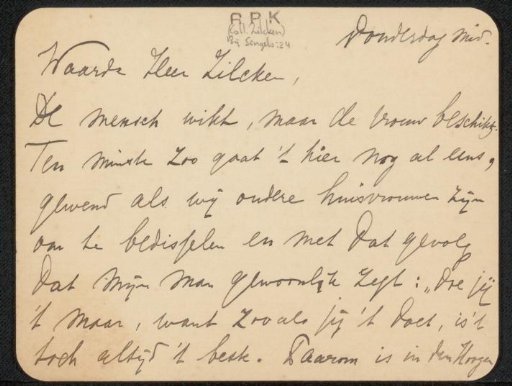 R.P.K
Coll. Zilcken
Donderdag mid.
Waarde Heer Zilcken,
De mensch wikt, maar de vrouw beschikt,
Ten minste zoo gaat 't hier nog al eens,
gewend als wij oudere huisvrouwen zijn
om te bedisselen en met dat gevolg
dat mijn man gewoonlijk zegt: "doe jij
't maar, want zooals jij 't doet, is 't
toch altijd 't beste. Daarom is in den Hoogen